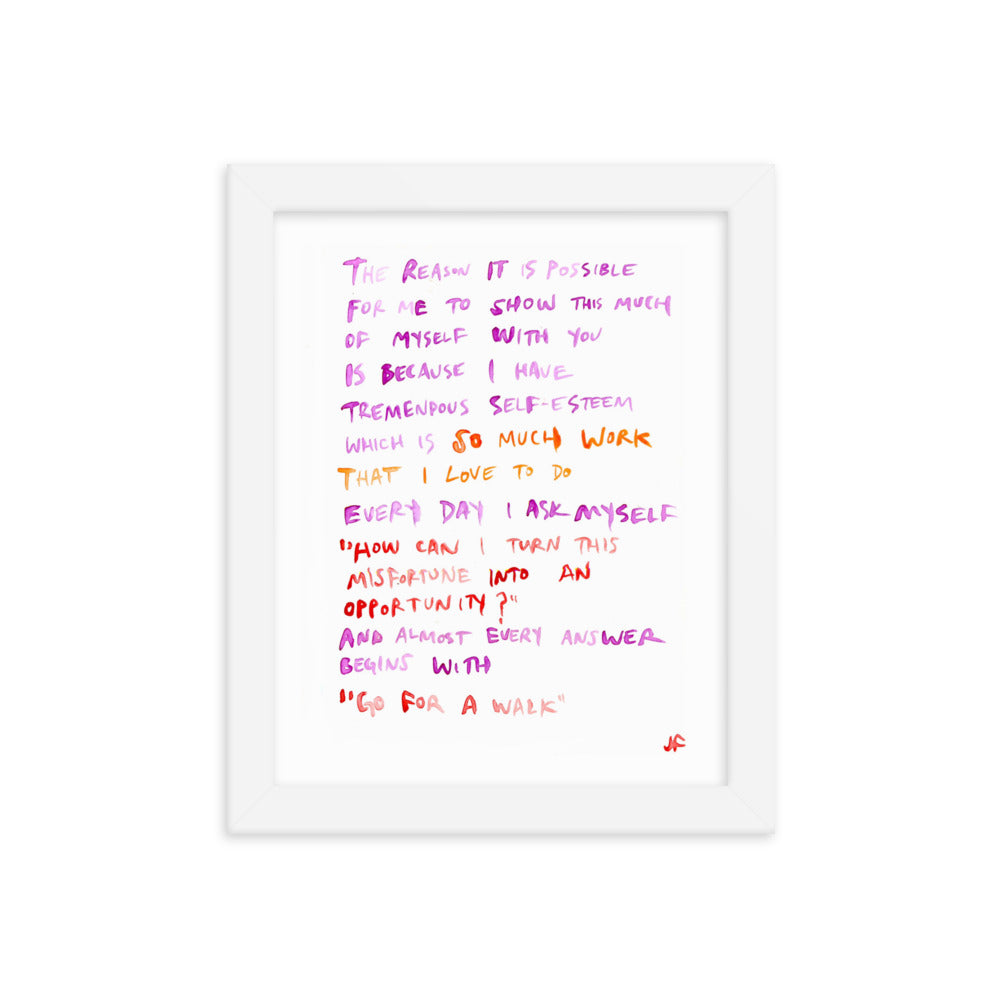 THE REASON IT IS POSSIBLE
FOR ME TO SHOW THIS MUCH
OF MYSELF WITH YOU
IS BECAUSE I HAVE
TREMENDOUS SELF-ESTEEM
WHICH IS SO MUCH WORK
THAT I LOVE TO DO
EVERY DAY I ASK MYSELF
"HOW CAN I TURN THIS
MISFORTUNE INTO AN
OPPORTUNITY?"
AND ALMOST EVERY ANSWER
BEGINS WITH
"GO FOR A WALK"
JF